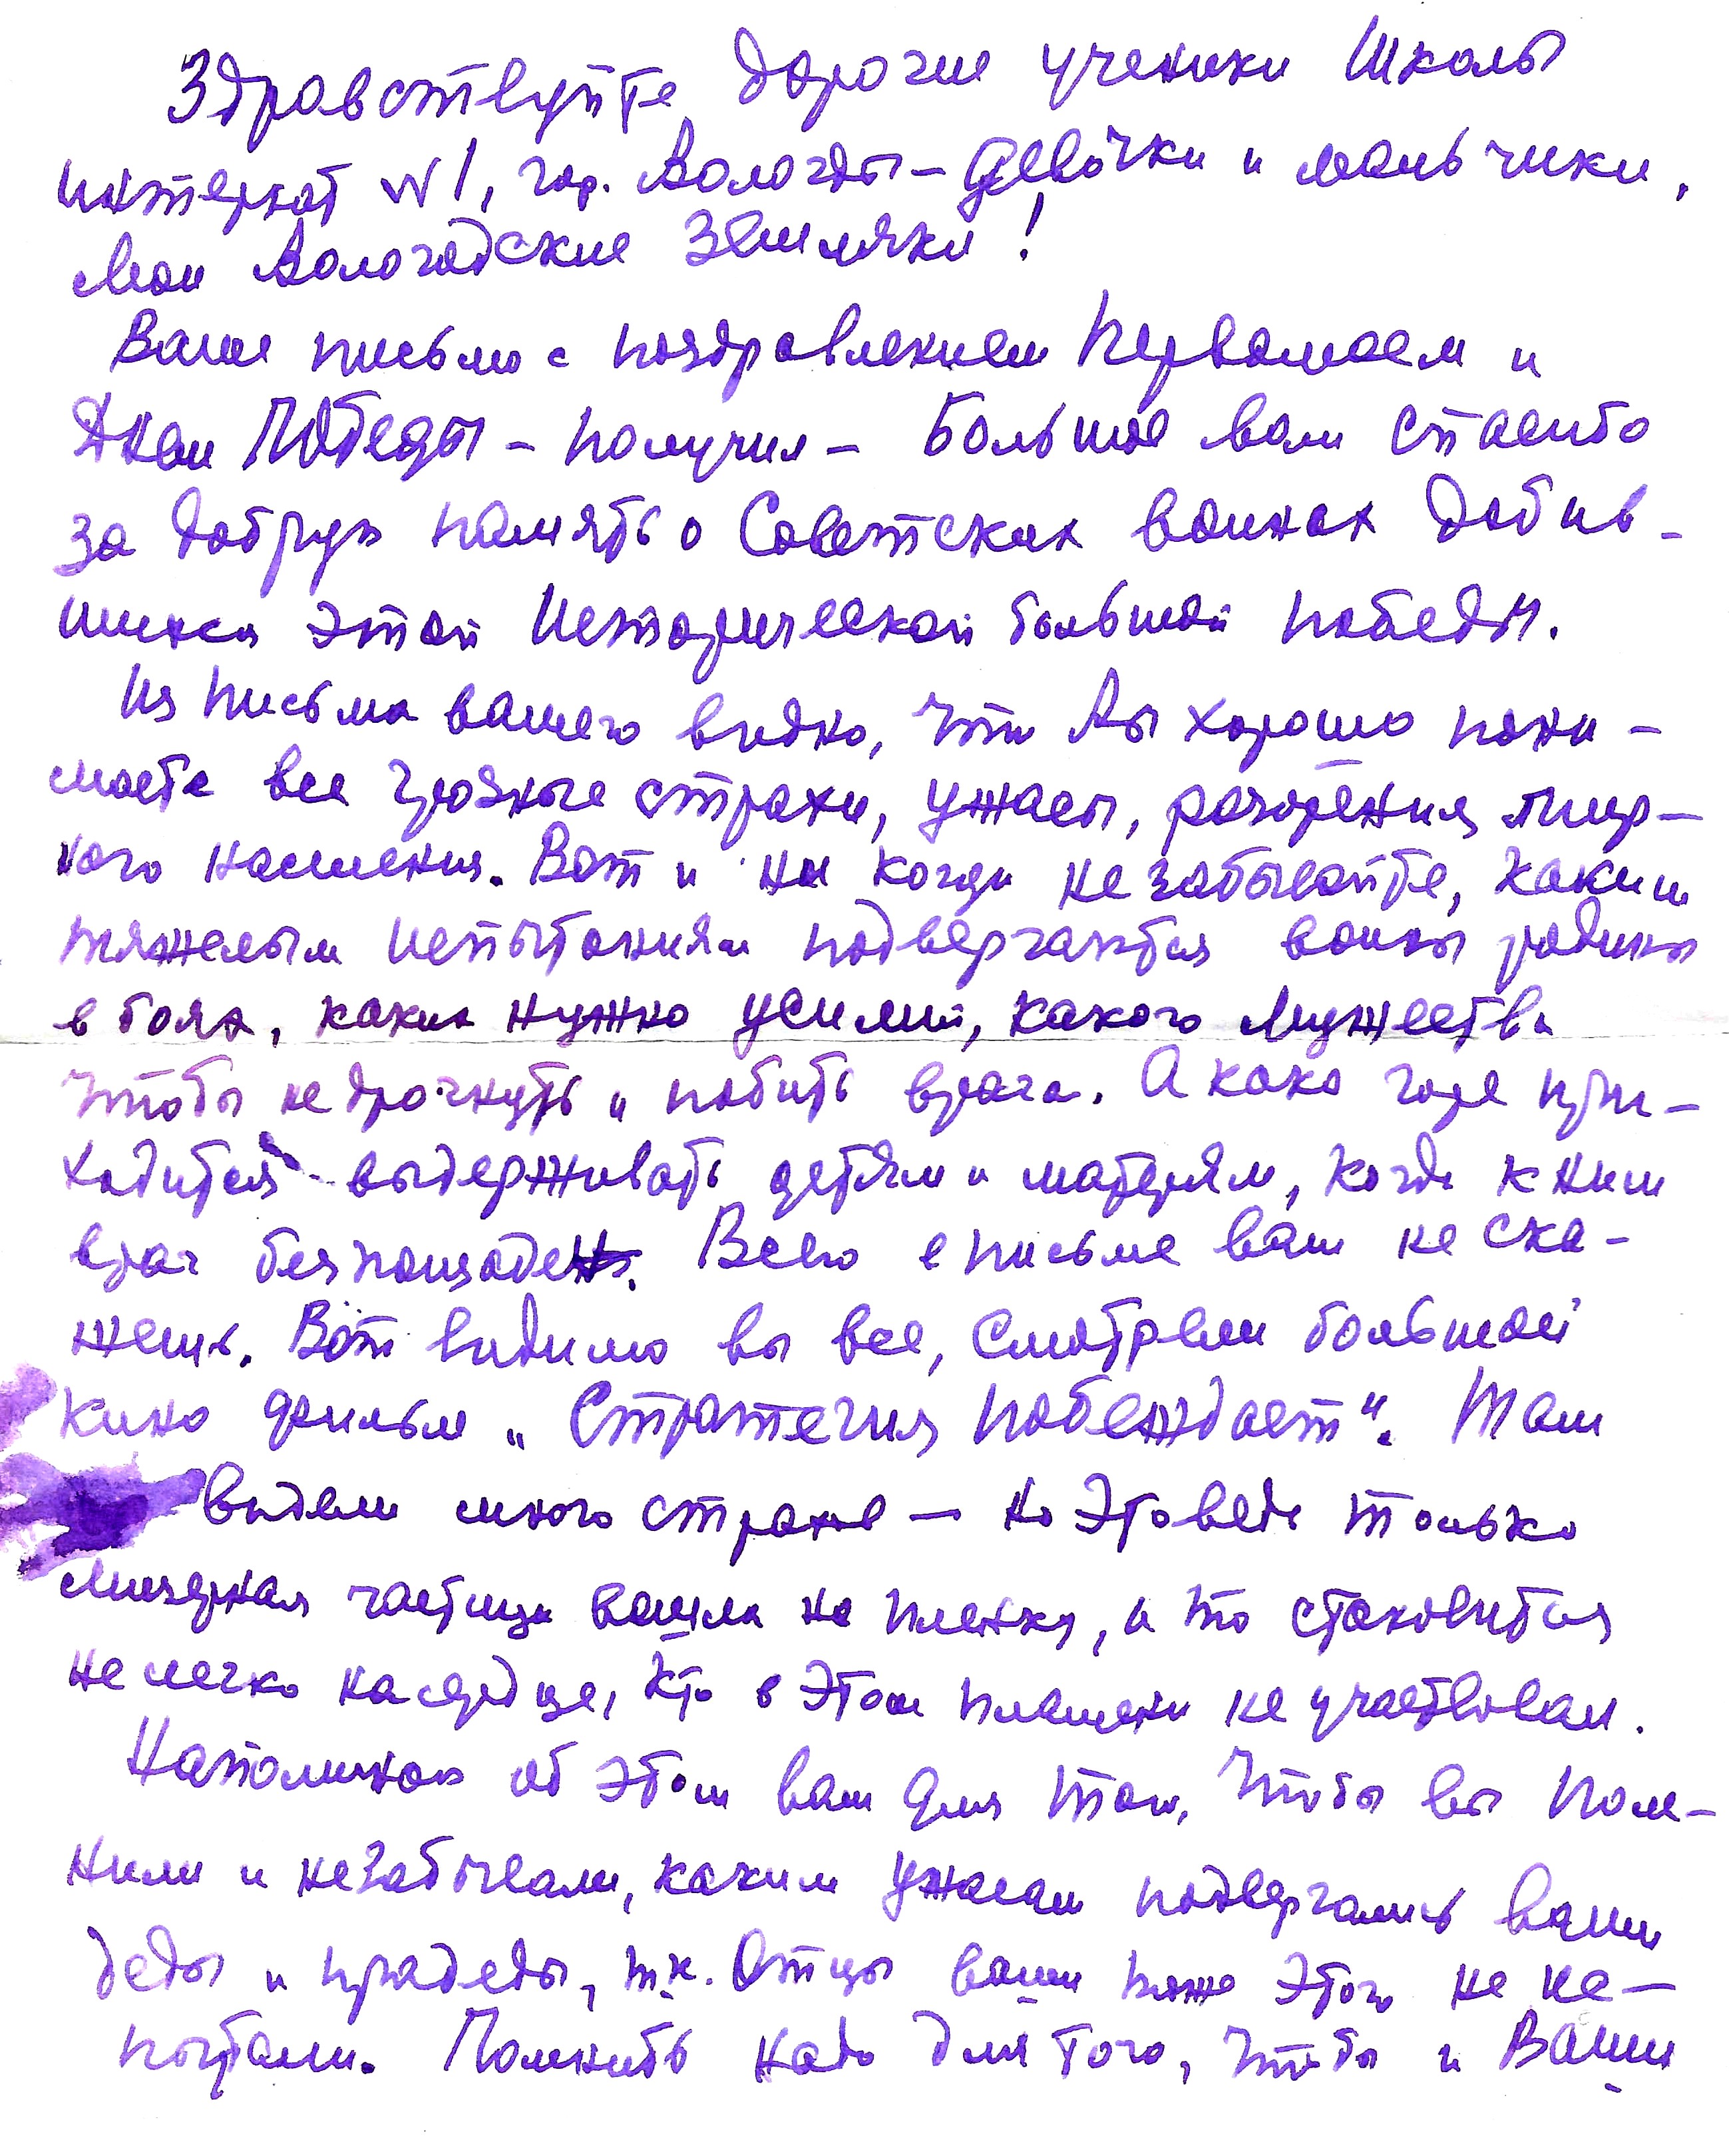 Здравствуйте, дорогие ученики Школы
интернат №1, гор. Вологды – девочки и мальчики,
мои Вологодские Земляки!
Ваше письмо с поздравлением Первомаем и
Днем Победы – получил – Большое вам спасибо
за добрую память о Советских воинах добив-
шихся этой Исторической большой победы.
Из письма вашего видно, что Вы хорошо пони-
маете все грозные страхи, ужасы, разорения мир-
ного населения. Вот и ни когда не забывайте, каким
тяжелым испытаниям подвергаются воины родины
в боях, каких нужно усилий, какого мужества
чтобы не дрогнуть и побить врага. А како горе при-
ходится выдерживать детям и матерям, когда к ним
враг безпощаден. Всего в письме вам не ска-
жешь. Вот видимо вы все, смотрели большой
кино фильм „Стратегия побеждает". Там
видели много страхов – но это ведь только
мизерная частица вошла на пленку, а то становится
не легко на сердце, кто в этом пламени не участвовал.
Напоминаю об этом вам для того, чтобы вы пом-
нили и не забывали, каким ужасам подвергались ваши
деды и прадеды, т.к. Отцы ваши тоже этого не ис-
пытали. Помнить надо для того, чтобы и Ваши